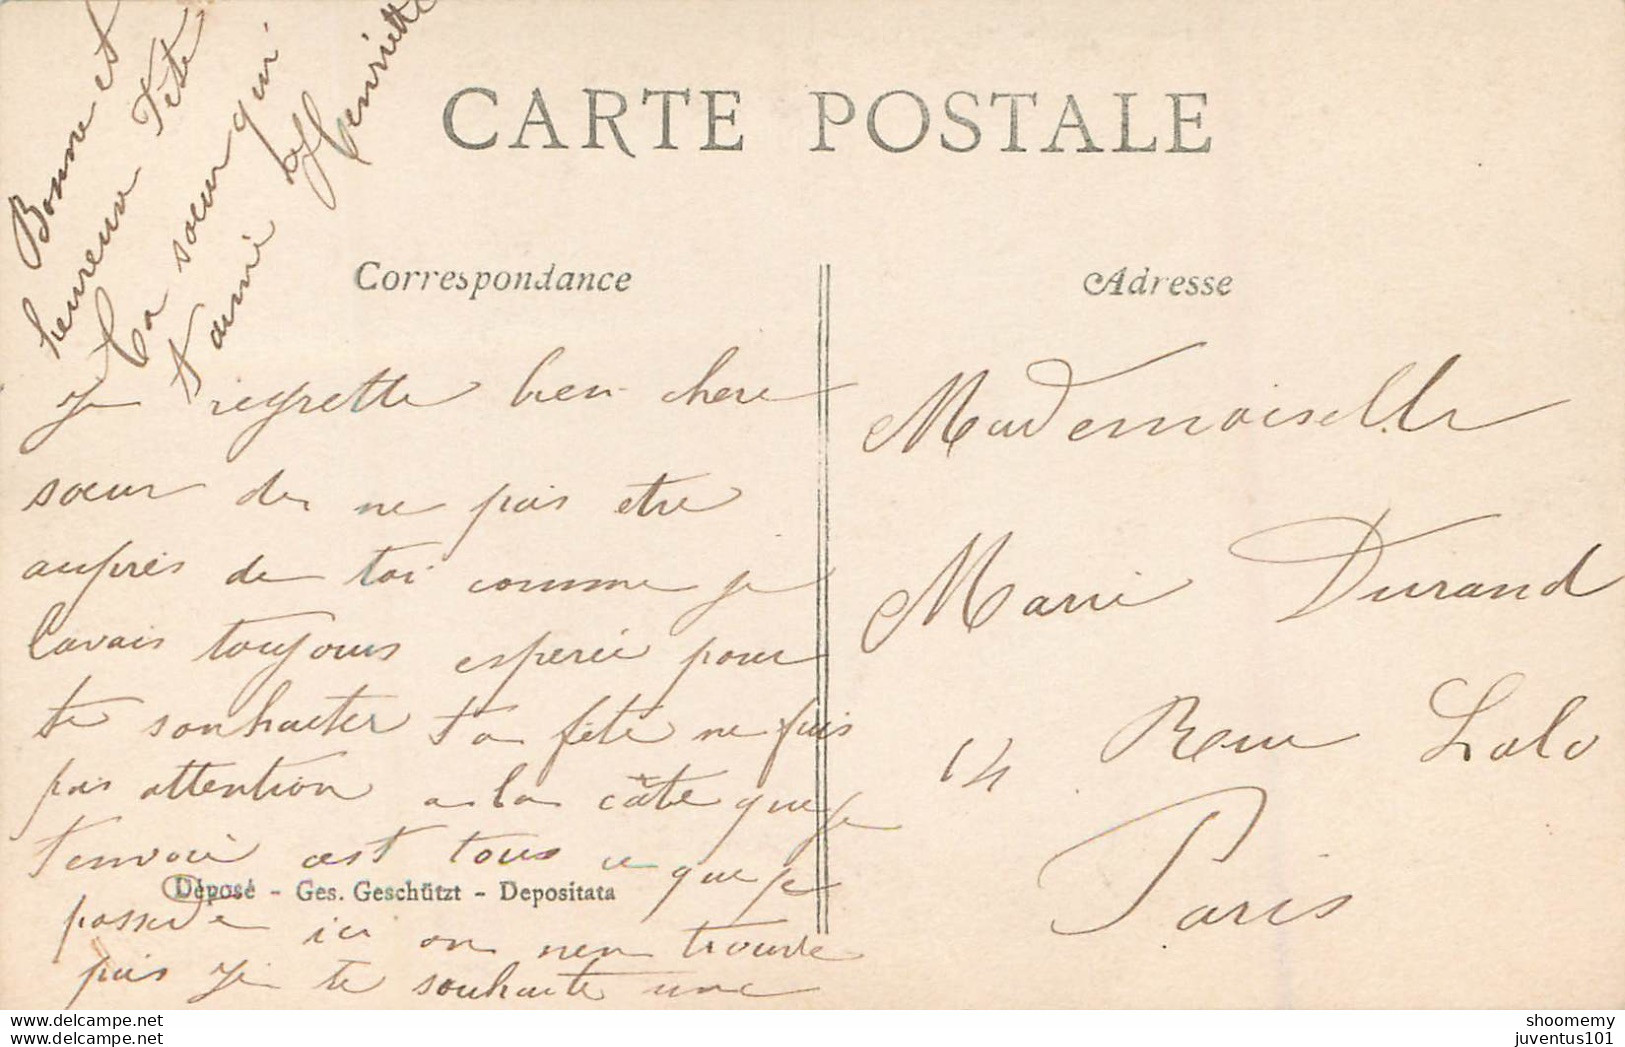 CARTE POSTALE
Correspondance
Adresse
Je regrette bien chere
sœur de ne pas etre
aupres de toi comme je
lavais toujours esperée pour
te souhaiter ta fête ne fais
pas attention a la câte que je
t'envoie cest tous ce que je
possede ici on nen trouve
pas Je te souhaite une
Bonne et
heureuse Fête
Ta sœur qui
t'aime
Henriette
Mademoiselle
Marie Durand
14 Reue Lalo
Paris
Déposé - Ges. Geschützt - Depositata
www.delcampe.net
your marketplace for collectors
shoomemy
juventus101